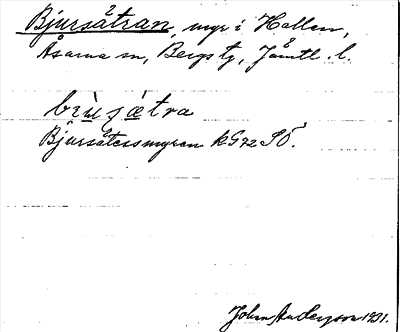 Bjursåtran, myr i Hallen,
Åsarna sn, Bergs tg, Jämtl. l.
brùsǽtra
Bjursåtessmyren kG72 SÖ
John Anderson 1931.